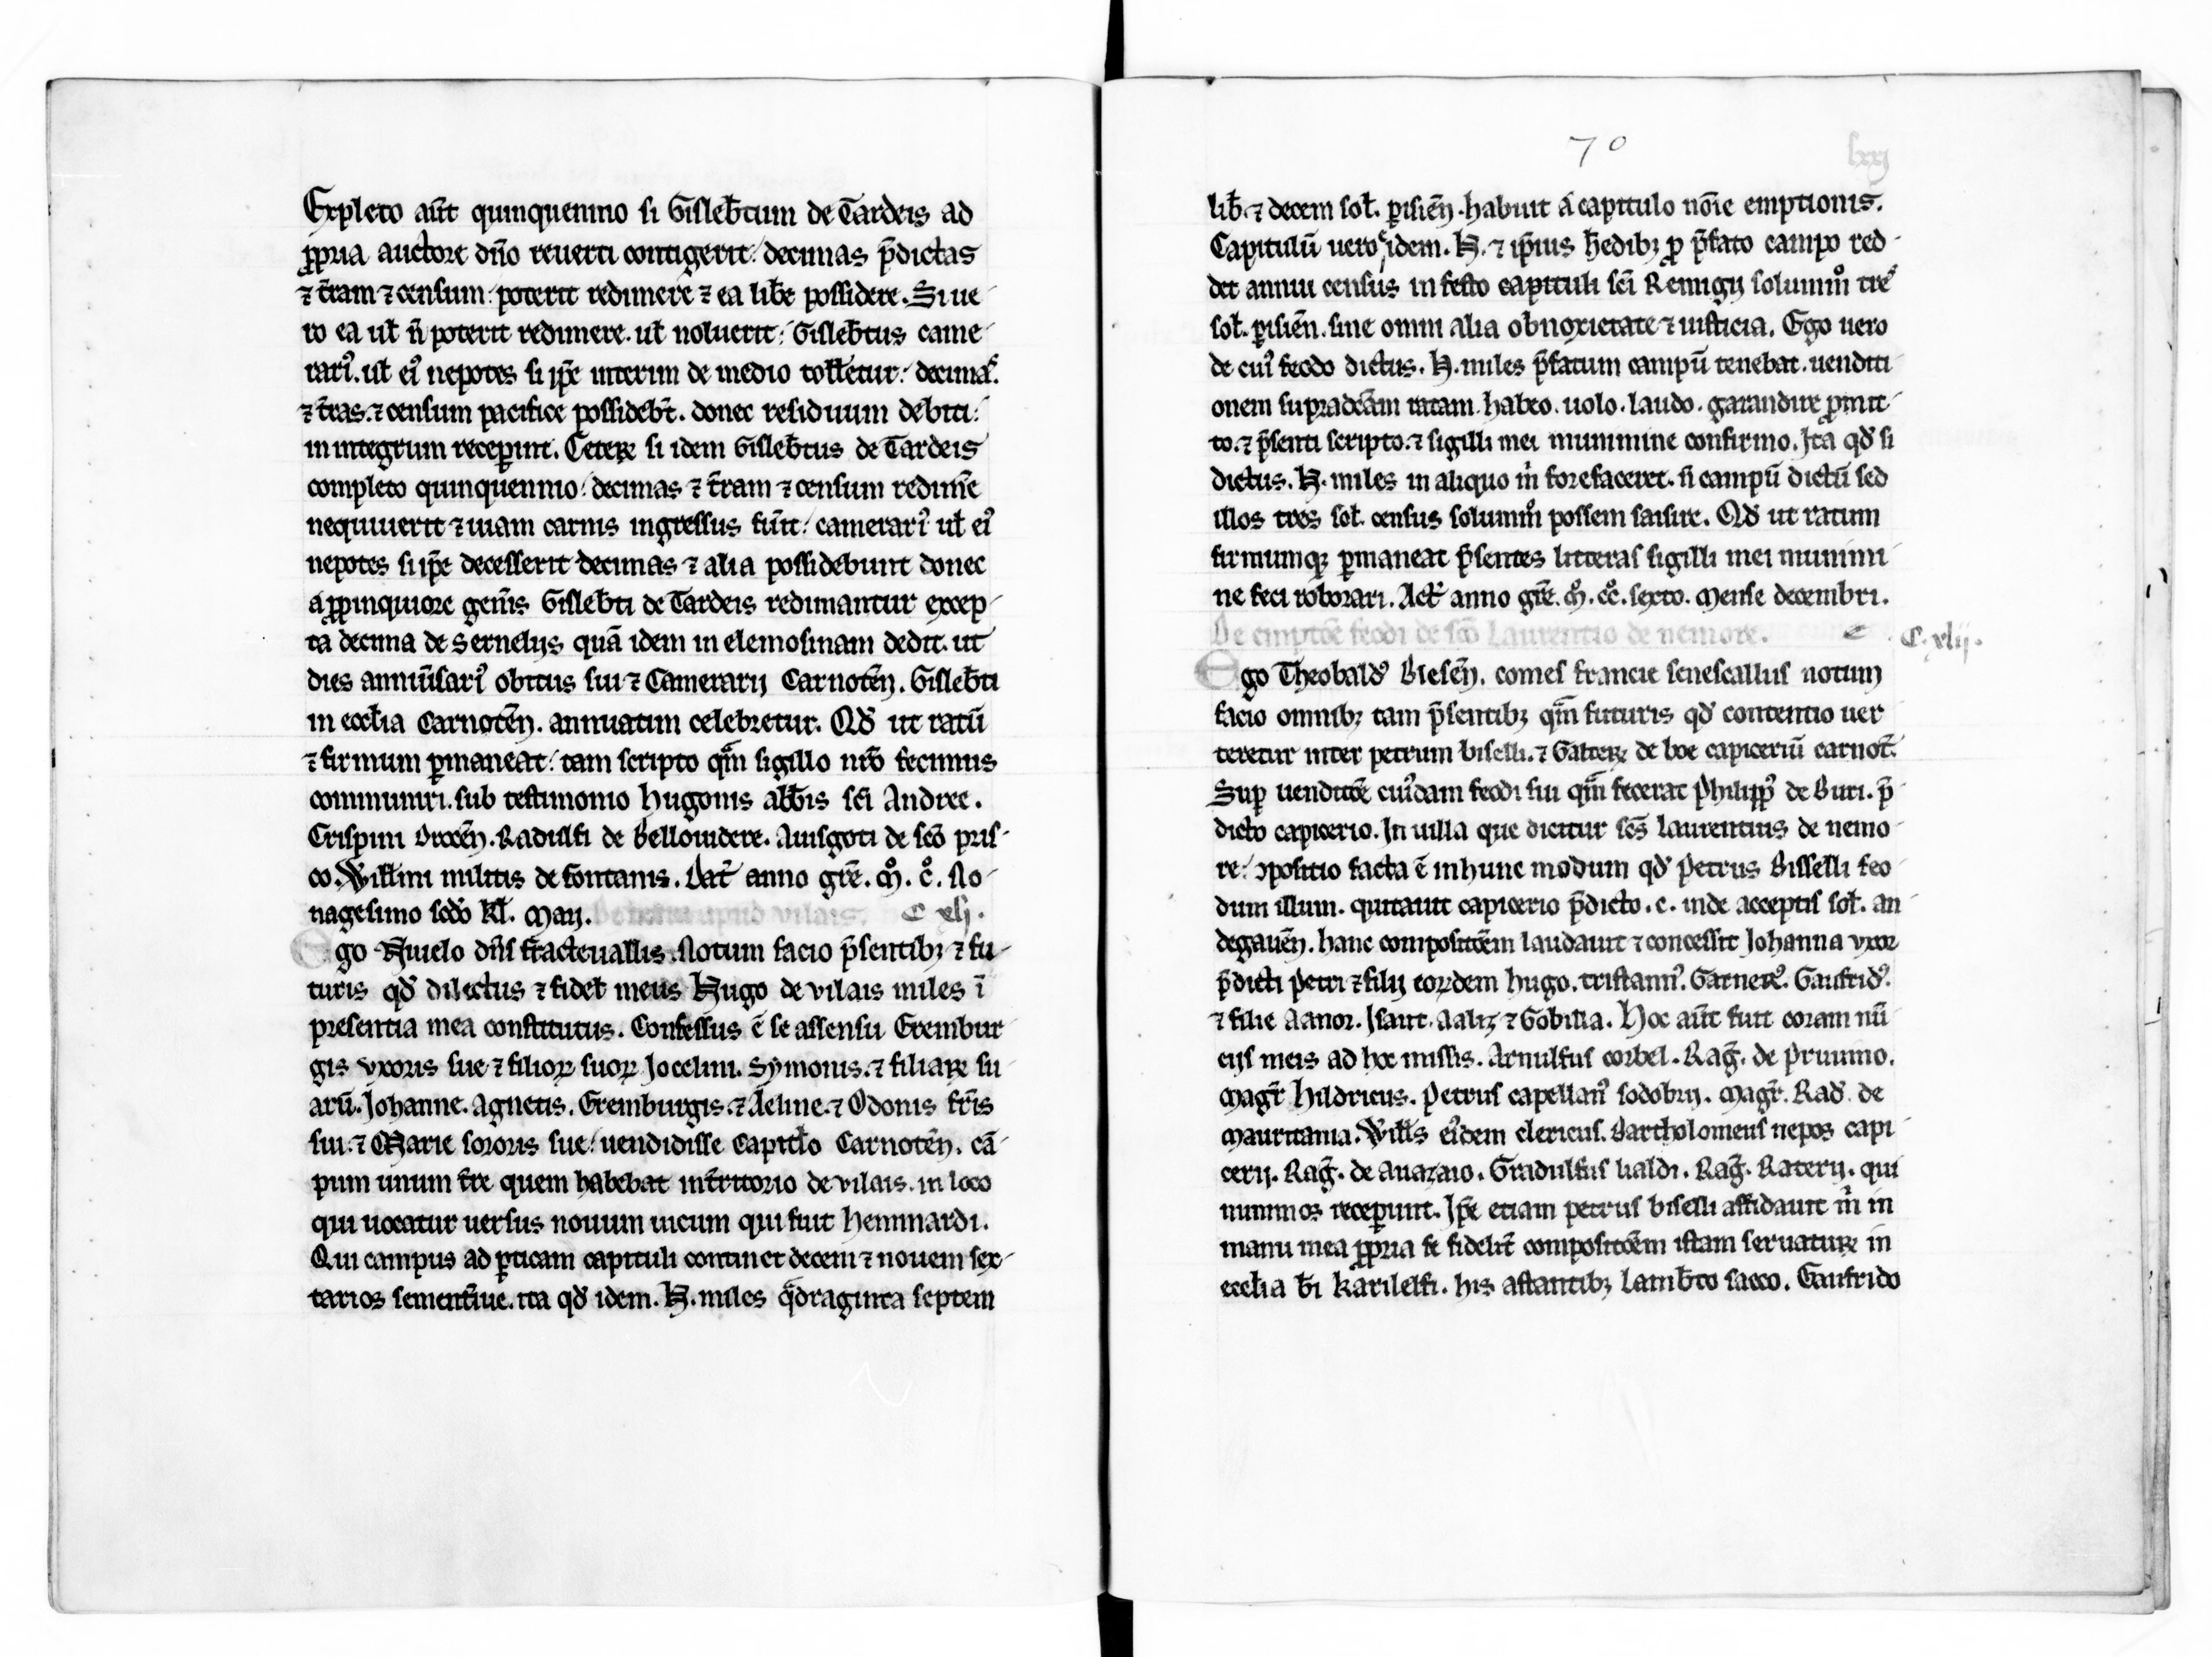 Expleto aūt quinquennio si Gislebtum de Tardeis ad
ꝓpria auctore dn̄o reuerti contigerit: decimas p̄dictas
⁊ t̄ram ⁊ censum: poterit redimere ⁊ ea libe possidere. Si ue-
ro ea ul̄ n̄ poterit redimere. ul̄ noluerit: Gislebtus came-
rariꝰ. ul̄ eiꝰ nepotes si ip̄e interim de medio tolletur: decimas.
⁊ t̄ras. ⁊ censum pacifice possidebt̄. donec residuum debiti:
in integrum receꝑint. Ceteꝝ si idem Gislebtus de Tardeis
completo quinquennio: decimas ⁊ t̄ram ⁊ censum redim̄e
nequiuerit ⁊ uiam carnis ingressus fu͛it: camerariꝰ ul̄ eiꝰ
nepotes si ip̄e decesserit decimas ⁊ alia possidebunt donec
a ꝓpinquiore gen͛is Gislebti de Tardeis redimantur excep-
ta decima de Sernelijs quā idem in elemosinam dedit. ut
dies anniu͛sariꝰ obitus sui ⁊ Camerarij Carnotēn. Gislebti
in eccl̄ia Carnotēn. annuatim celebretur. Qd̄ ut ratū
⁊ firmum ꝑmaneat: tam scripto qm̄ sigillo nr̄o fecimus
communiri. sub testimonio hugonis abb̄is sc̄i Andree.
Crispini Drocēn. Radulfi de Bellouidere. Auisgoti de sc̄o pris-
co. Will̄mi militis de fontanis. Dat̄ anno gr̄e. ᴍ̊. c̊. No-
nagesimo sc̄do kl̄. Maij. De terra apud vilais. C xlj.
Ego Niuelo dn̄s fracteuallis. Notum facio p̄sentibꝫ ⁊ fu-
turis qd̄ dilectus ⁊ fidel̄ meus Hugo de vilais miles ī
presentia mea constitutus. Confessus ē se assensu Erembur-
gis vxoris sue ⁊ filioꝝ suoꝝ Jocelini. Symonis. ⁊ filiaꝝ su-
arū. Johanne. Agnetis. Eremburgis. ⁊ Aeline. ⁊ Odonis fr̄is
sui. ⁊ Marie sororis sue: uendidisse Capitl̄o Carnotēn. cā-
pum unum t̄re quem habebat in t̄ritorio de vilais. in loco
qui uocatur uersus nouum uicum qui fuit hemmardi.
Qui campus ad ꝑticam capituli continet decem ⁊ nouem sex-
tarios sementīue. ita qd̄ idem. H. miles qᵃdraginta septem
70 lxxj
lib̄. ⁊ decem sol̄. ꝑisiēn. habuit a capitulo noīe emptionis.
Capitulū uero idem. H. ⁊ ip̄ius h͛edibꝫ ꝓ p̄fato campo red-
det annuū census in festo capituli sc̄i Remigij solummͦ tres
sol̄. ꝑisiēn. sine omni alia obnoxietate ⁊ iusticia. Ego uero
de cuiꝰ feodo dictus. H. miles p̄fatum campū tenebat. uenditi-
onem supradc̄am ratam habeo. uolo. laudo. garandire ꝓmit-
to. ⁊ p̄senti scripto. ⁊ sigilli mei munimine confirmo. Ita qd̄ si
dictus. H. miles in aliquo m̍ forefaceret. n̄ campū dictū sed
illos tres sol̄. census solummͦ possem saisire. Qd̄ ut ratum
firmumqꝫ ꝑmaneat p̄sentes litteras sigilli mei munimi-
ne feci roborari. Act̄ anno gr̄e. ᴍ̊. cc̊. sexto. Mense decembri.
De emptōe feodi de sc̄o Laurentio de nemore. C. xlij.
Ego Theobaldꝰ Blesēn. comes francie senescallus notum
facio omnibꝫ tam p̄sentibꝫ qm̄ futuris qd̄ contentio uer-
teretur inter petrum biselli. ⁊ Galteꝝ de boe capiceriū carnot̄.
Suꝑ uenditōe cuiꝰdam feodi sui qm̄ fecerat Philippꝰ de Buri. p̄-
dicto capicerio. In uilla que dicitur sc̄s Laurentius de nemo-
re: ꝯpositio facta ē in hunc modum qd̄ Petrus Bisselli feo-
dum illum. quitauit capicerio p̄dicto. c. inde acceptis sol̄. an-
degauēn. hanc compositōem laudauit ⁊ concessit Johanna vxor
p̄dicti Petri ⁊ filij eoꝝdem hugo. tristannꝰ. Garnerꝰ. Gaufridꝰ.
⁊ filie Aanor. Isaut. Aaliz ⁊ Gobilia. Hoc aūt fuit coram nū-
cijs meis ad hoc missis. Arnulfus corbel. Rag̃. de pruuino.
Magr̄ hildricus. Petrus capellanꝰ sodobrij. Magr̄. Rad̄. de
Mauritania. Will̄s eiꝰdem clericus. Bartholomeus nepos capi-
cerij. Rag̃. de auazaio. Gradulfus lialdi. Rag̃. Raterij. qui
nummos receꝑunt. Ip̄e etiam petrus biselli affidauit m̍ in
manu mea ꝓpria se fidelit̄ compositōem istam seruatuꝝ in
eccl̄ia b̄i Karilelfi. his astantibꝫ Lamb̄to sacco. Gaufrido